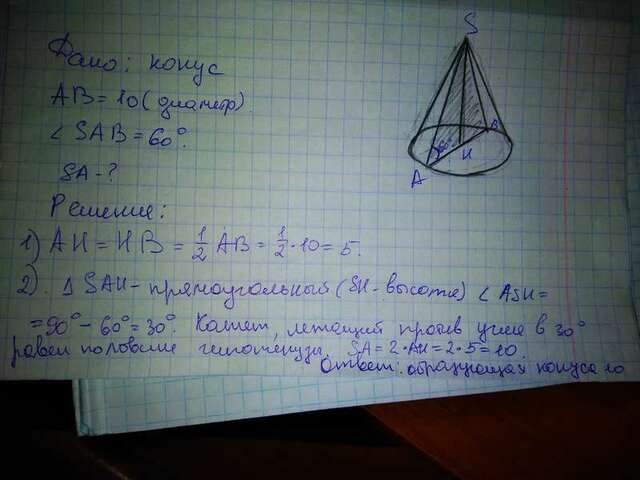 Дано: конус
AB = 10 (диаметр).
∠ SAB = 60°.
SA - ?
Решение:
1) AH = HB = 1/2 AB = 1/2 · 10 = 5.
2). Δ SAH - прямоугольный (SH - высота) ∠ ASH =
= 90° - 60° = 30°. Катет, лежащий против угла в 30°
равен половине гипотенузы. SA = 2·AH = 2·5 = 10.
Ответ: образующая конуса 10
S
B
60°
H
A